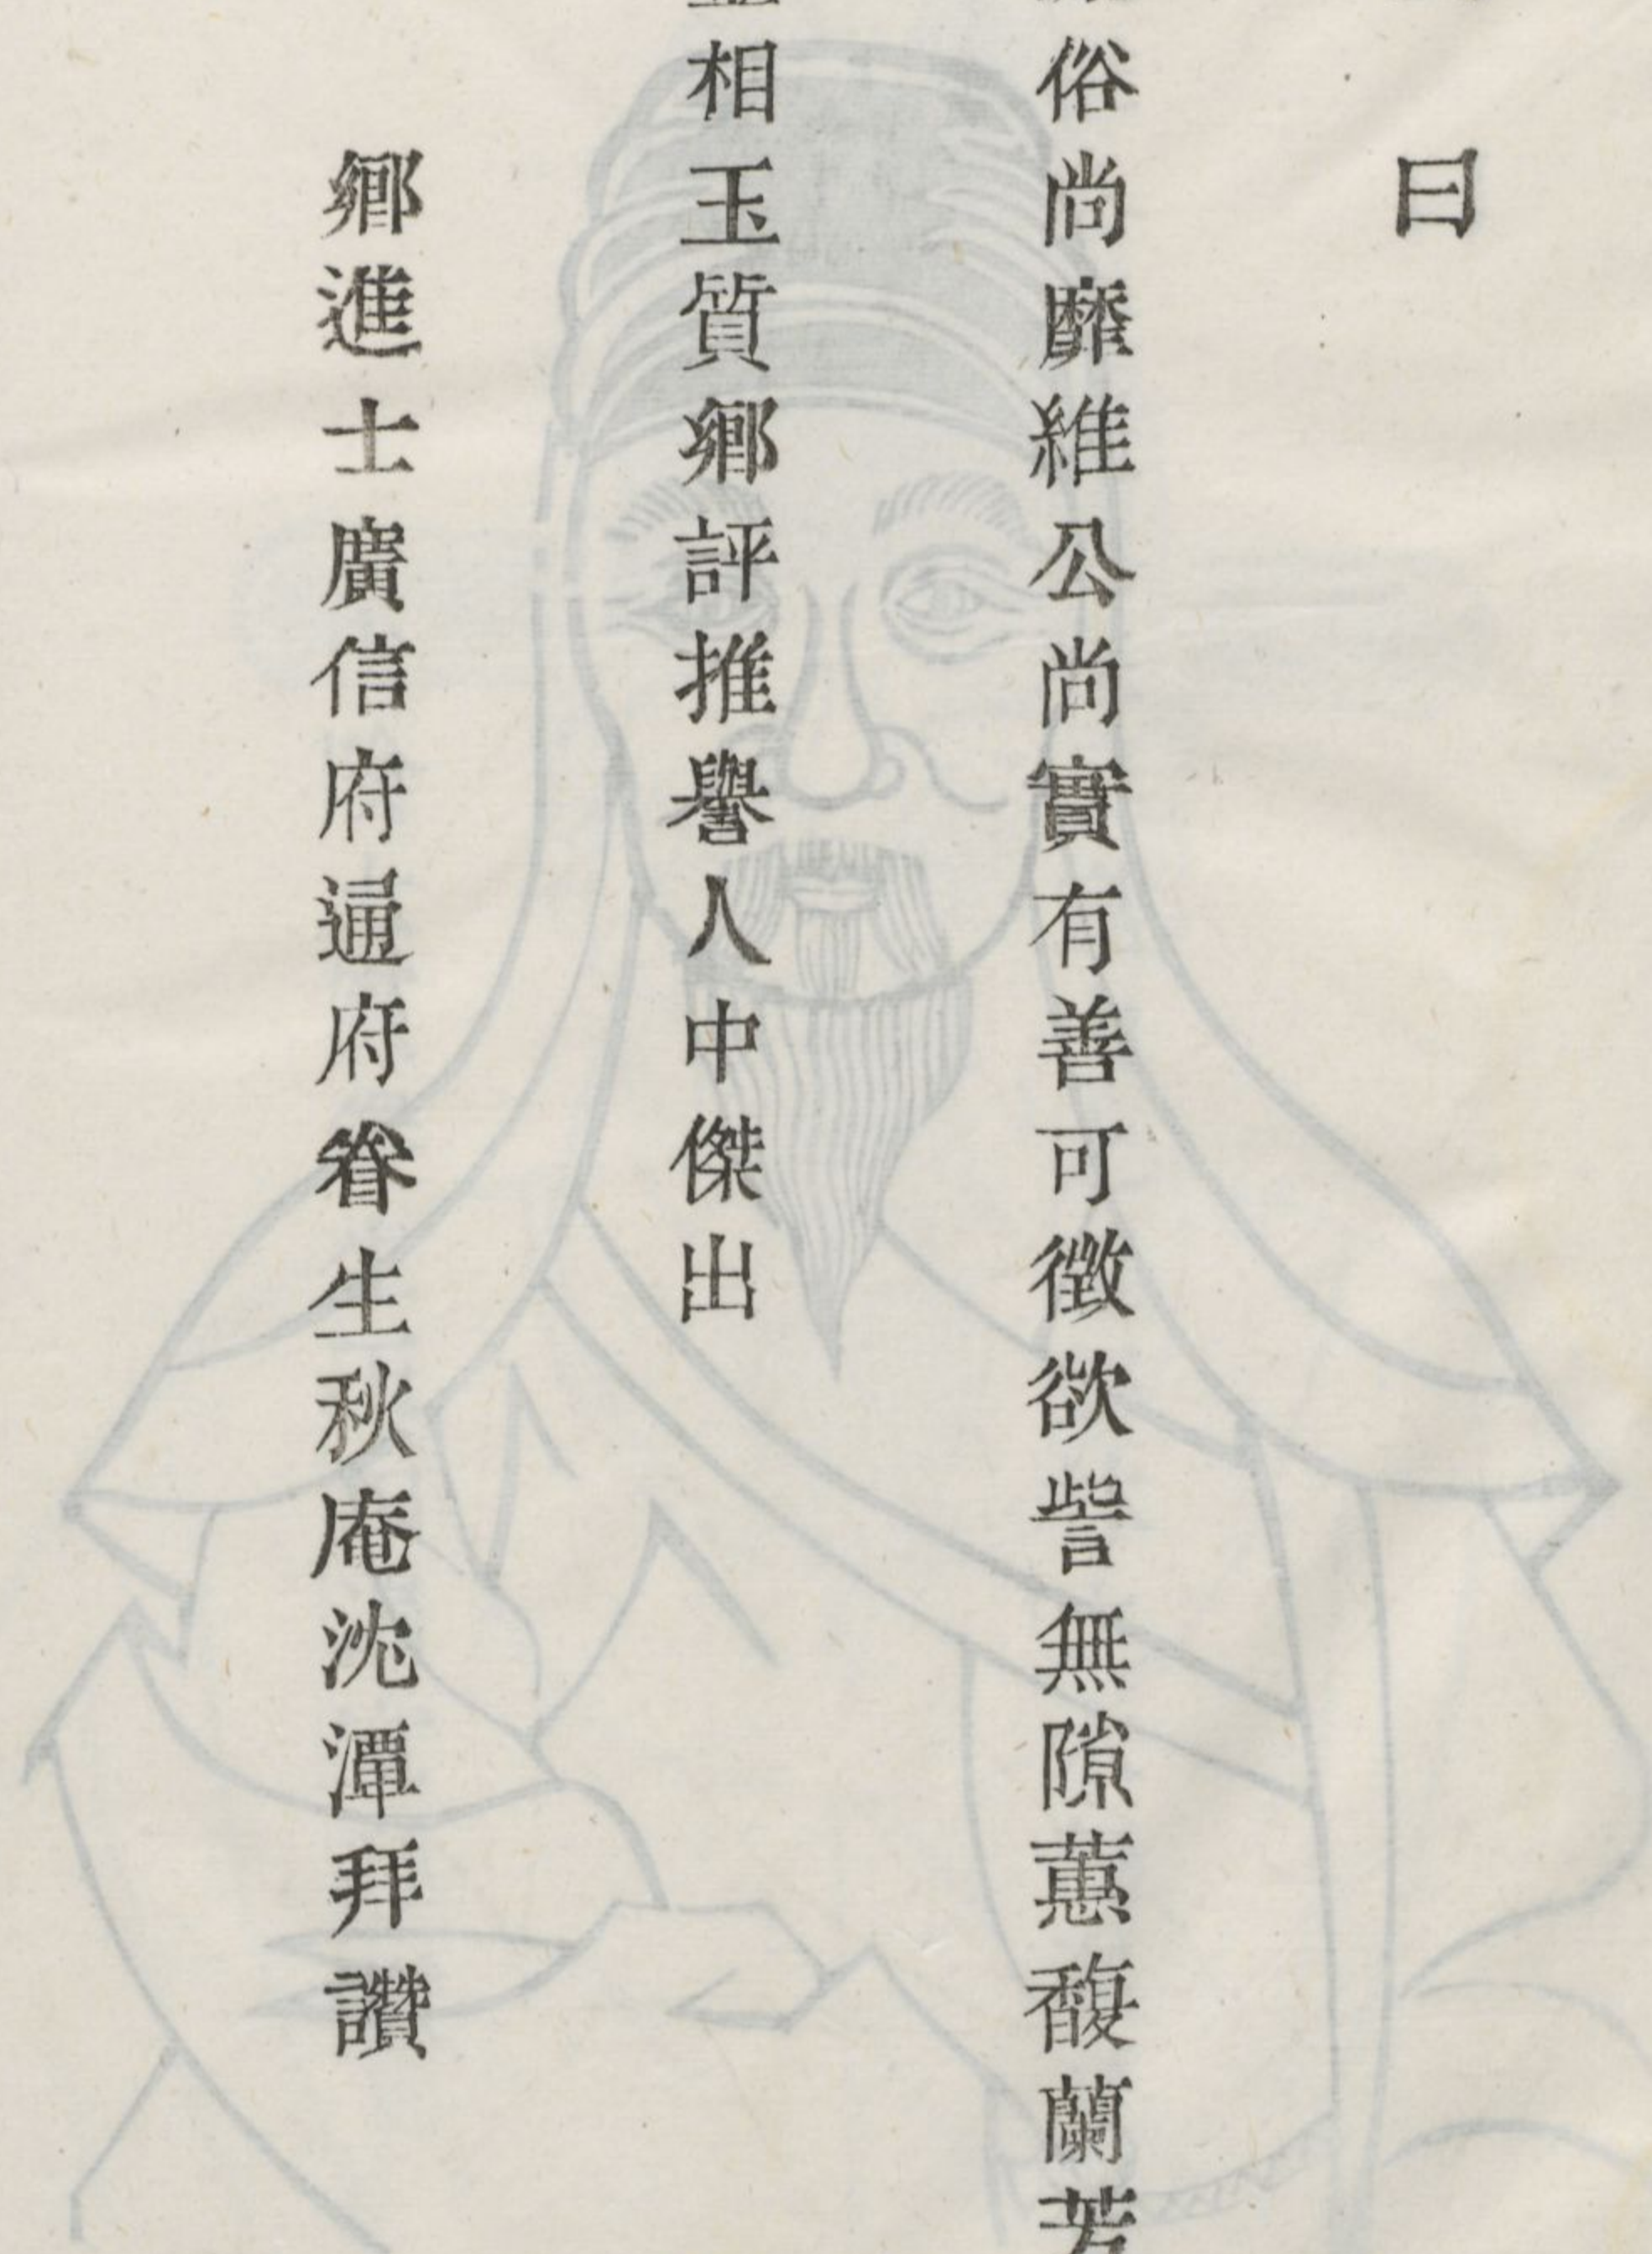 曰
俗尚靡維公尚實有善可徵欲訾無隙蕙馥蘭芳
相玉質鄉評推譽人中傑出
鄉進士廣信府通府眷生秋庵沈潭拜讚